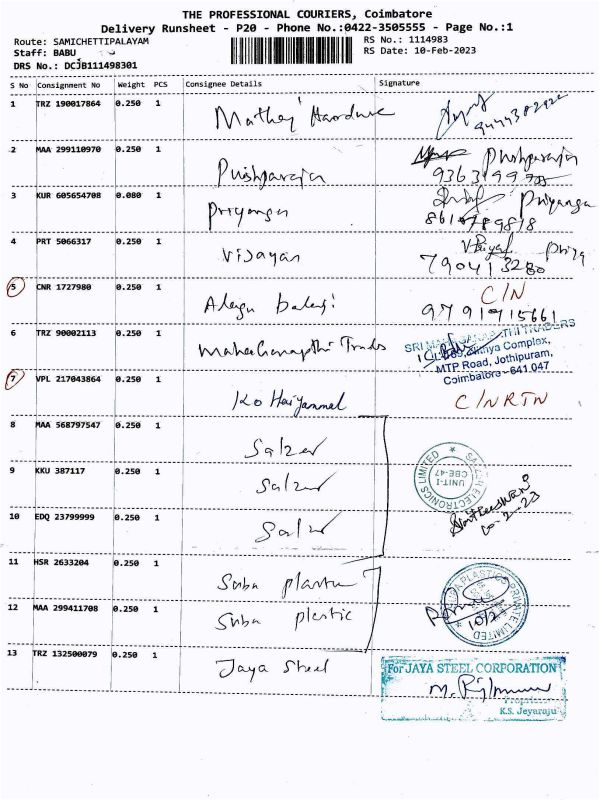 THE PROFESSIONAL COURIERS, Coimbatore
Delivery Runsheet - P20 - Phone No.:0422-3505555 - Page No.:1
Route: SAMICHETTIPALAYAM
RS No.: 1114983
Staff: BABU
RS Date: 10-Feb-2023
DRS No.: DCJB111498301
S No Consignment No Weight PCS Consignee Details Signature
1 TRZ 190017864 0.250 1
2 MAA 299110970 0.250 1 Pushparaja Pushparaja
3 KUR 605654708 0.080 1 Priyanga Priyanga
4 PRT 5066317 0.250 1 Vijayan
790413280
5 CNR 1727980 0.250 1 C/N
9791715661
6 TRZ 90002113 0.250 1 MahaGanapthi Trads
SRI THI TRADERS
Complex,
MTP Road, Jothipuram,
Coimbatore - 641 047
7 VPL 217043864 0.250 1 C/N RTN
8 MAA 568797547 0.250 1 Salzer
9 KKU 387117 0.250 1 Salzer
UNIT-I
CBE-47
ELECTRONICS LIMITED
10 EDQ 23799999 0.250 1 Salzer
10-2-23
11 HSR 2633204 0.250 1 Suba
12 MAA 299411708 0.250 1 Suba plastic
PLASTICS PRIVATE LIMITED
13 TRZ 132500079 0.250 1 Jaya Steel
For JAYA STEEL CORPORATION
Proprietor
K.S. Jeyaraju